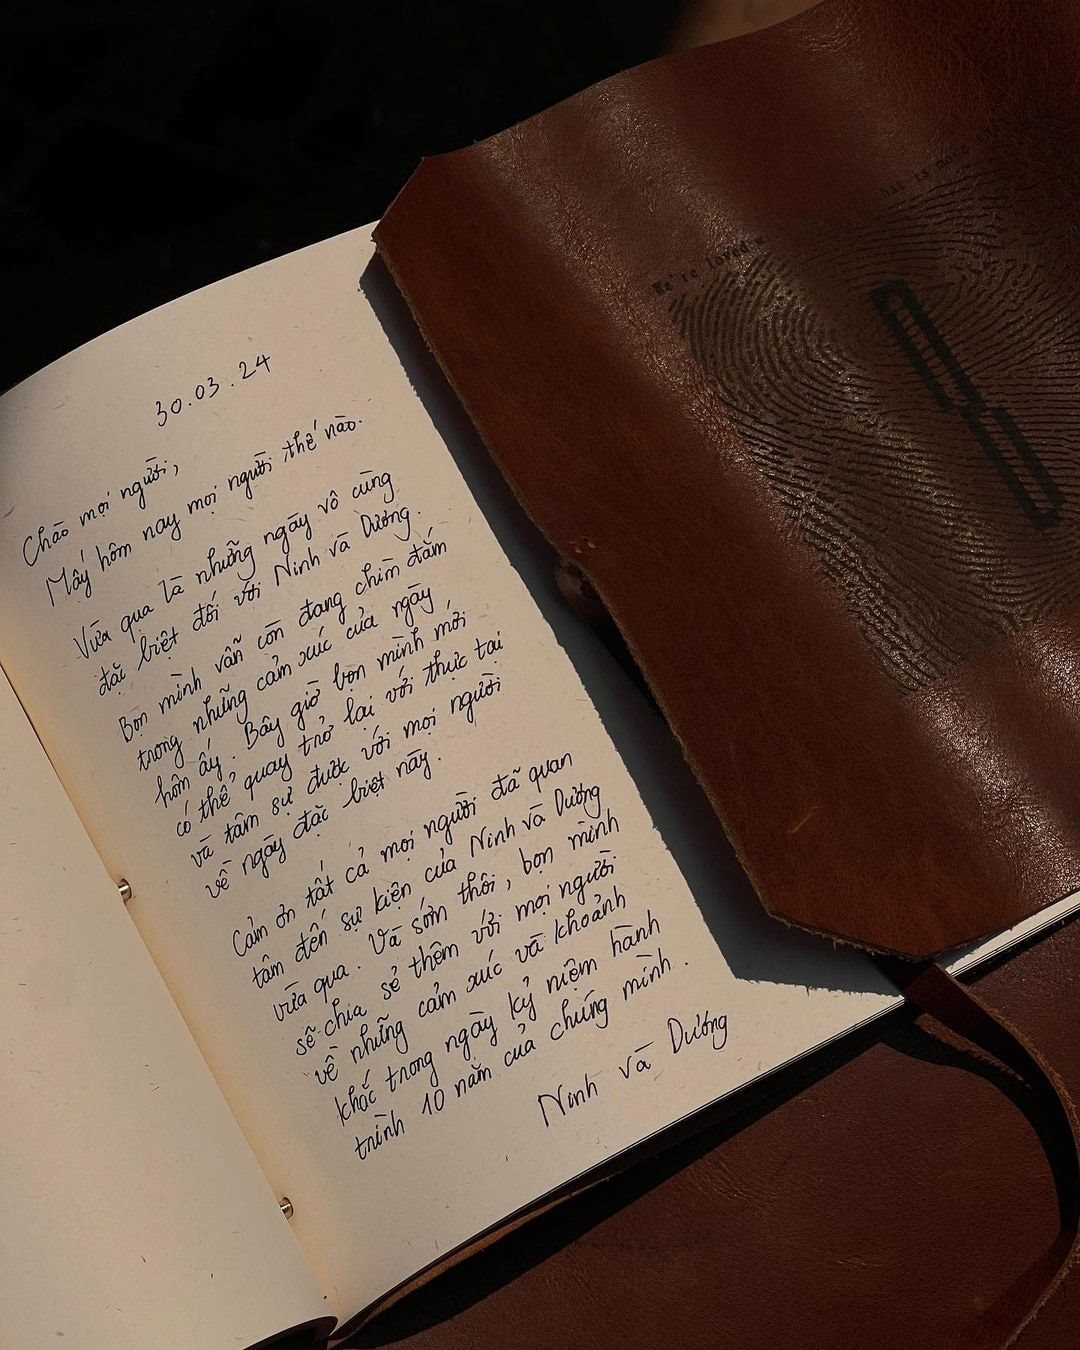 30.03.24
Chào mọi người,
Mấy hôm nay mọi người thế nào.
Vừa qua là những ngày vô cùng
đặc biệt đối với Ninh và Dương.
Bọn mình vẫn còn đang chìm đắm
trong những cảm xúc của ngày
hôm ấy. Bây giờ bọn mình mới
có thể quay trở lại với thực tại
và tâm sự được với mọi người
về ngày đặc biệt này.
Cảm ơn tất cả mọi người đã quan
tâm đến sự kiện của Ninh và Dương
vừa qua. Và sớm thôi, bọn mình
sẽ chia sẻ thêm với mọi người
về những cảm xúc và khoảnh
khắc trong ngày kỷ niệm hành
trình 10 năm của chúng mình.
Ninh và Dương
We're loved
that is more